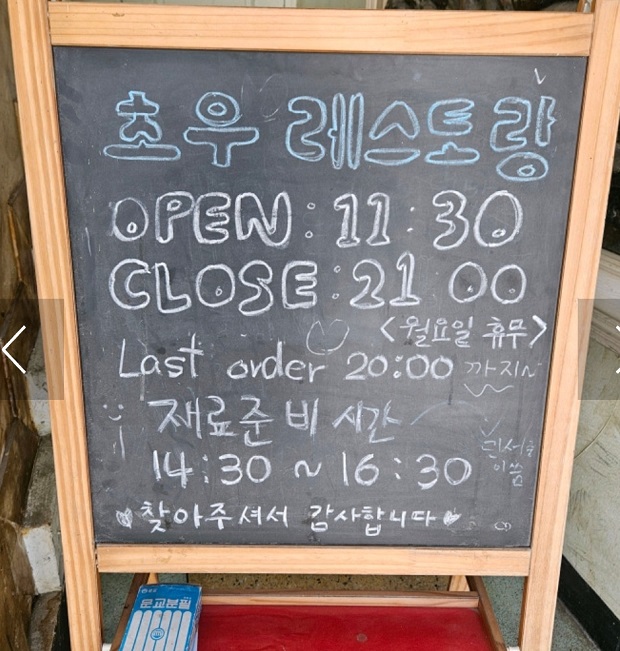 초우 레스토랑
OPEN : 11 : 30
CLOSE : 21 00
<월요일 휴무>
Last order 20:00 까지~
재료준비 시간
14 : 30 ~ 16 : 30
♥찾아주셔서 감사합니다♥
문교분필